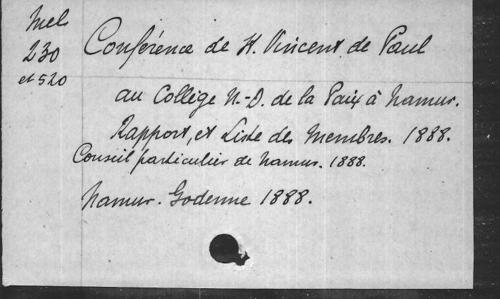 Mel
230
et 520
Conférence de St. Vincent de Paul
au Collège N.-D. de la Paix à Namur.
Rapport, et Liste des Membres. 1888.
Conseil particulier de Namur. 1888.
Namur. Godenne 1888.